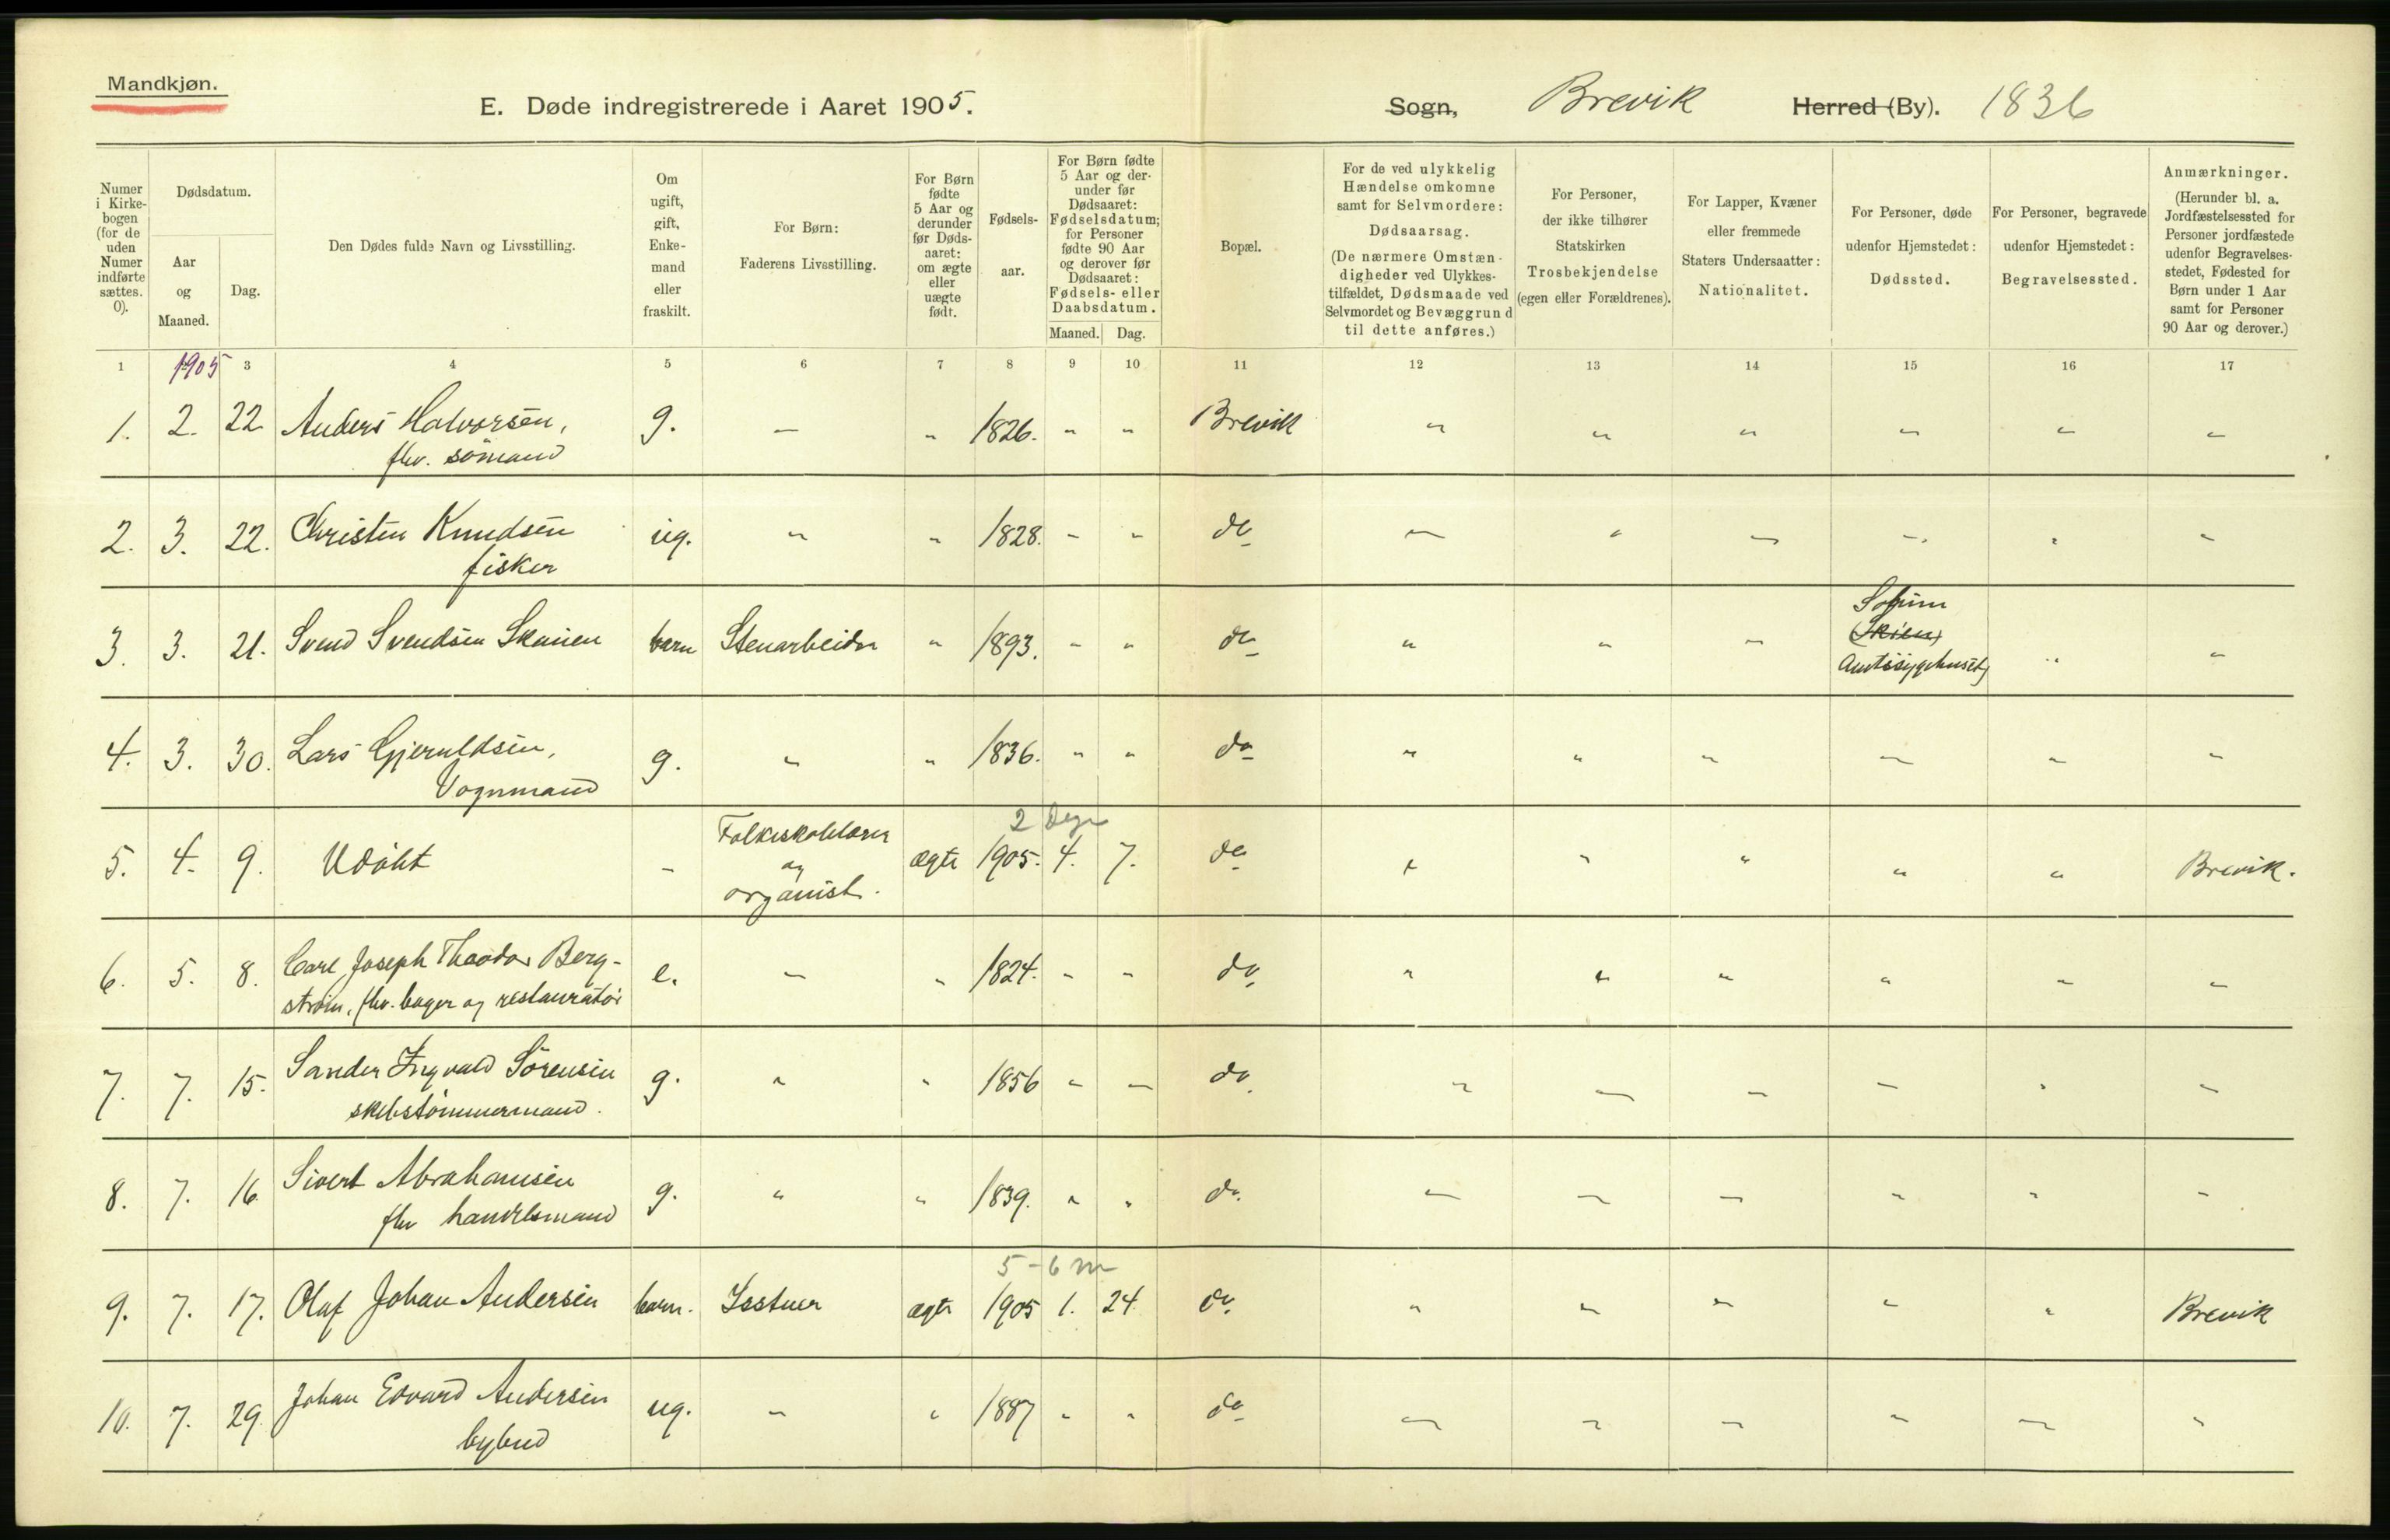 Mandkjøn.
E. Døde indregistrerede i Aaret 1905.
Sogn, Brevik Herred (By). 1836
Numer i Kirkebogen (for de uden Numer indførte sættes. 0).
Dødsdatum.
Aar og Maaned.
Dag.
Den Dødes fulde Navn og Livsstilling.
Om ugift, gift, Enkemand eller fraskilt.
For Børn: Faderens Livsstilling.
For Børn fødte 5 Aar og derunder før Dødsaaret: om ægte eller uægte født.
Fødselsaar.
For Børn fødte 5 Aar og derunder før Dødsaaret: Fødselsdatum; for Personer fødte 90 Aar og derover før Dødsaaret: Fødsels- eller Daabsdatum.
Maaned. Dag.
Bopæl.
For de ved ulykkelig Hændelse omkomne samt for Selvmordere: Dødsaarsag. (De nærmere Omstændigheder ved Ulykkestilfældet, Dødsmaade ved Selvmordet og Bevæggrund til dette anføres.)
For Personer, der ikke tilhører Statskirken Trosbekjendelse (egen eller Forældrenes).
For Lapper, Kvæner eller fremmede Staters Undersaatter: Nationalitet.
For Personer, døde udenfor Hjemstedet: Dødssted.
For Personer, begravede udenfor Hjemstedet: Begravelsessted.
Anmærkninger. (Herunder bl. a. Jordfæstelsessted for Personer jordfæstede udenfor Begravelsesstedet, Fødested for Børn under 1 Aar samt for Personer 90 Aar og derover.)
1 1905 3 4 5 6 7 8 9 10 11 12 13 14 15 16 17
1. 2. 22. Anders Halvorsen, g. — " 1826. " " Brevik " " " " " "
fhv. sømand
2. 3. 22. Christen Knudsen ug. " " 1828. " " do — " — " " "
fisker
3. 3. 21. Svend Svendsen Skauen barn Stenarbeider " 1893. " " do " " " " "
(Skien)
Amtssygehuset)
4. 3. 30. Lars Gjeruldsen, g. " " 1836. " " do " " " — " "
Vognmand
2 Dage
5. 4. 9. Udøbt - Folkeskolelærer og organist. ægte 1905. 4. 7. do " " " " " Brevik.
6. 5. 8. Carl Joseph Theodor Berg- e. — " 1824. " " do " " " " " "
strøm, fhv. bager og restauratør
7. 7. 15. Sander Ingvald Sørensen g. " " 1856 " — do " — — — " —
skibstømmermand.
8. 7. 16. Sivert Abrahamsen g. " " 1839. " " do. — — — " " "
fhv handelsmand
5-6 m
9. 7. 17. Olaf Johan Andersen barn. Isstuer ægte 1905 1. 24. do. " " " " " Brevik
10. 7. 29. Johan Edvard Andersen ug. — " 1887 " " do — — — — — "
bybud